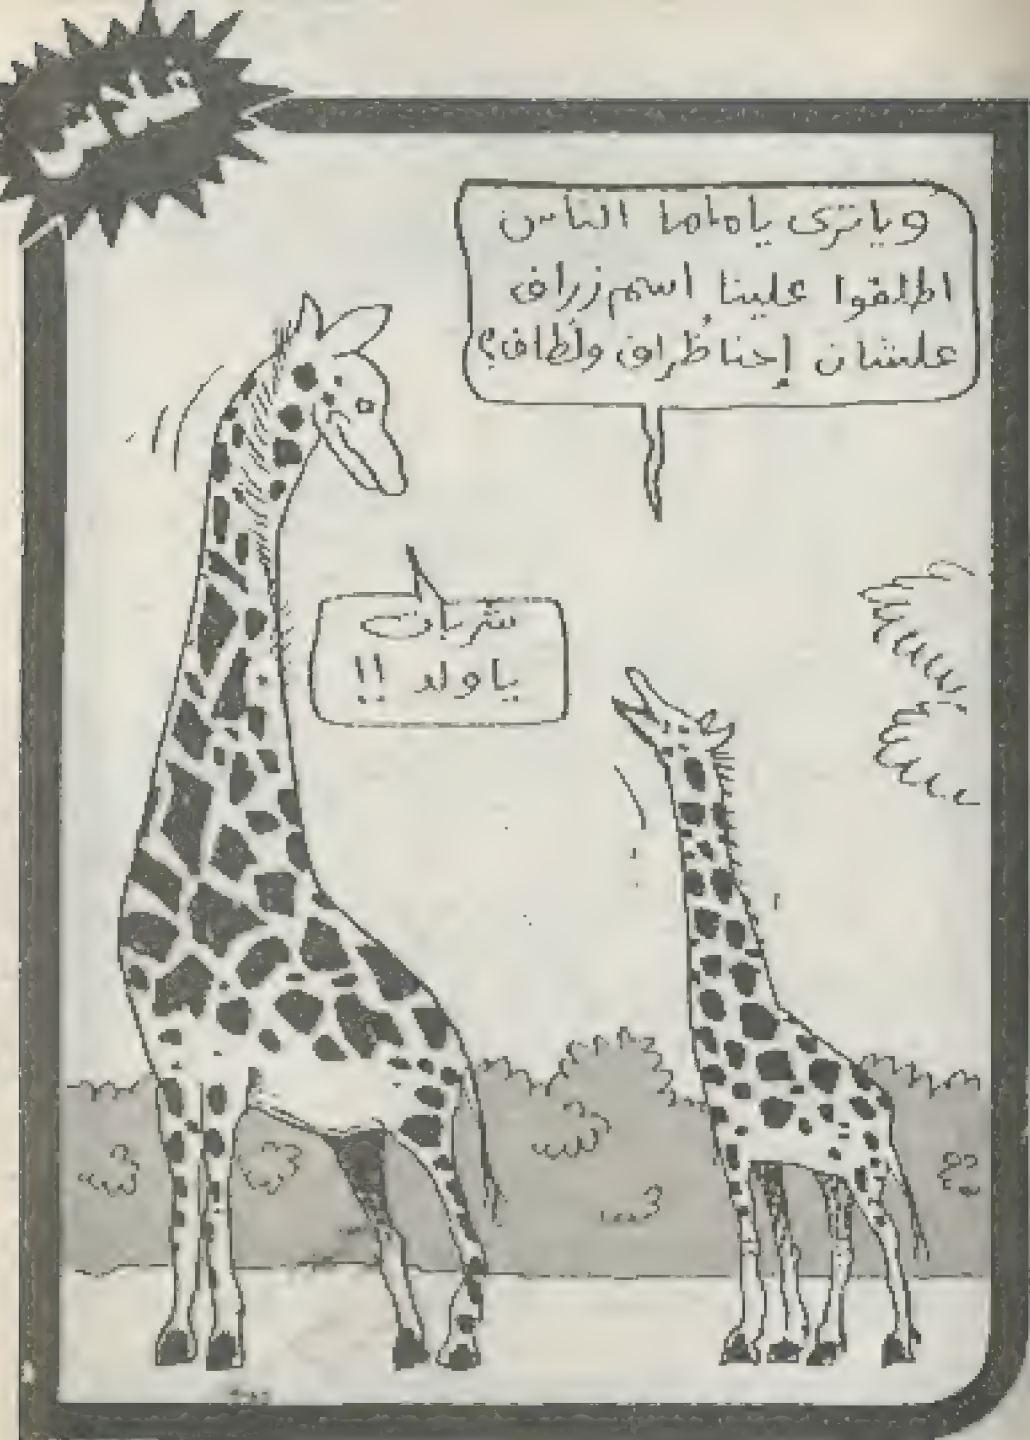 فلاش
وياترى ياماما الناس
اطلقوا علينا اسم زراف
علشان إحنا ظُراف ولُطاف؟
شربات
ياولد !!